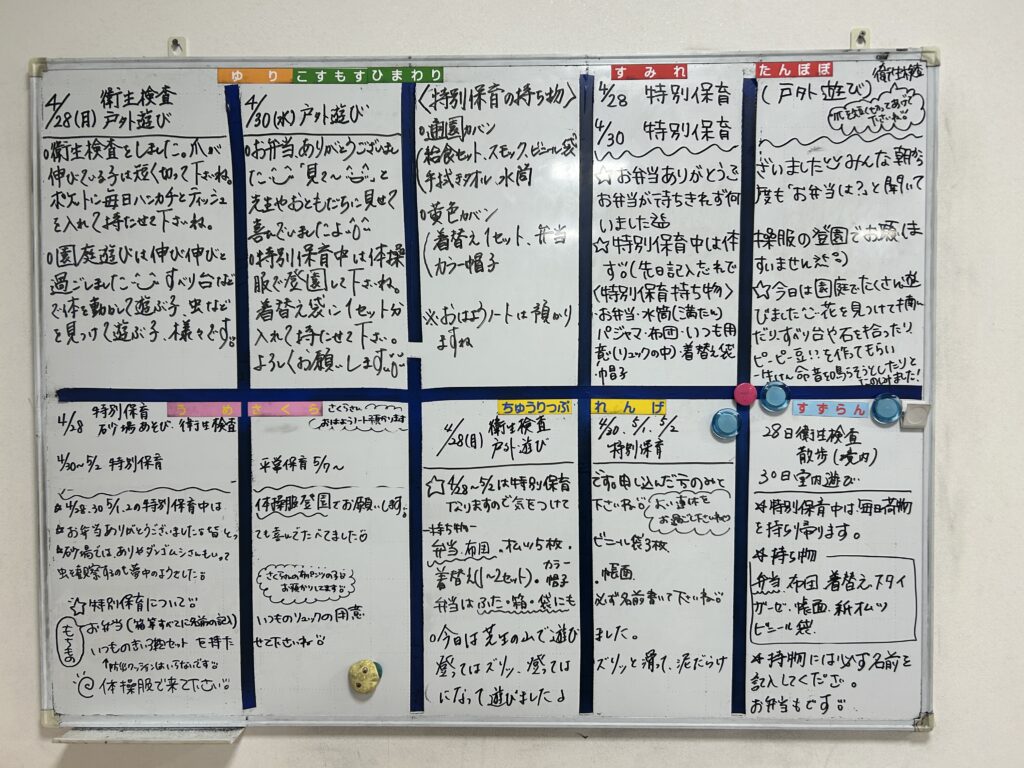 ゆり こすもす ひまわり
4/28(月) 衛生検査
戸外遊び
o衛生検査をしました。爪が
伸びている子は短く切って下さいね。
ポケットに毎日ハンカチとティッシュ
を入れて持たせて下さいね。
o園庭遊びは伸び伸びと
過ごしました すべり台など
で体を動かして遊ぶ子、虫など
を見つけて遊ぶ子、様々です。
4/30(水) 戸外遊び
oお弁当、ありがとうございまし
た 「見て〜」と
先生やおともだちに見せて
喜んでいましたよ
o特別保育中は体操
服で登園して下さいね。
着替え袋に1セット分
入れて持たせて下さい。
よろしくお願いします。
〈特別保育の持ち物〉
o通園カバン
給食セット、スモック、ビニール袋
手拭きタオル、水筒
o黄色カバン
着替え1セット、弁当
カラー帽子
※おはようノートは預かり
ますね
すみれ たんぽぽ
4/28 特別保育 (戸外遊び) 衛生検査
4/30 特別保育
爪を短く切ってあげて
下さいね
☆お弁当ありがとうございました みんな朝から
お弁当が待ちきれず何度も「お弁当は?」と聞いて
いました
☆特別保育中は体操服の登園でお願いしま
す。(先日記入忘れですいません)
〈特別保育持ち物〉
・お弁当・水筒(満たん)
パジャマ・布団・いつも用
意(リュックの中)・着替え袋
・帽子
☆今日は園庭でたくさん遊
びました 花を見つけて摘ん
だり、すべり台や石を拾ったり
ピーピー豆を作てもらい
一生けん命音を鳴らそうとしたりと
うめ さくら
4/28 特別保育
砂場あそび、衛生検査
4/30〜5/2 特別保育
さくらさん
おはようノート預かります
平常保育 5/7〜
4/28.30 5/1.2の特別保育中は体操服登園でお願いします。
お弁当ありがとうございました とっても喜んでたべてました
砂場では、ありやダンゴムシさんもいて
虫を観察するのも夢中のようでした
☆特別保育について
もちもの
お弁当(箱等すべてに名前の記入)
いつものリュックの用意
いつものきがえ袋セットを持たせて下さいね
さくらさんの布パンツの子は
お預かりしてます
体操服で来て下さい
ちゅうりっぷ れんげ
4/28(月) 衛生検査
戸外遊び
4/30、5/1、5/2
特別保育
☆4/28〜5/2は特別保育です。申し込んだ方のみで
なりますので気をつけて下さいね
よい連休を
お過ごし下さいね
-持ち物-
弁当.布団.オムツ5枚.ビニール袋3枚
着替え(1〜2セット).カラー帽子.帳面.
弁当はふた・箱・袋にも必ず名前書いて下さいね
o今日は芝生の山で遊びました。
登ってはズリッ、登ってはズリッと滑って、泥だらけ
になって遊びましたよ
すずらん
28日衛生検査
散歩(境内)
30日室内遊び
*特別保育中は毎日荷物
を持ち帰ります。
*持ち物
弁当.布団.着替え.スタイ
ガーゼ.帳面.紙オムツ
ビニール袋.
*持物には必ず名前を
記入してください。
お弁当もです